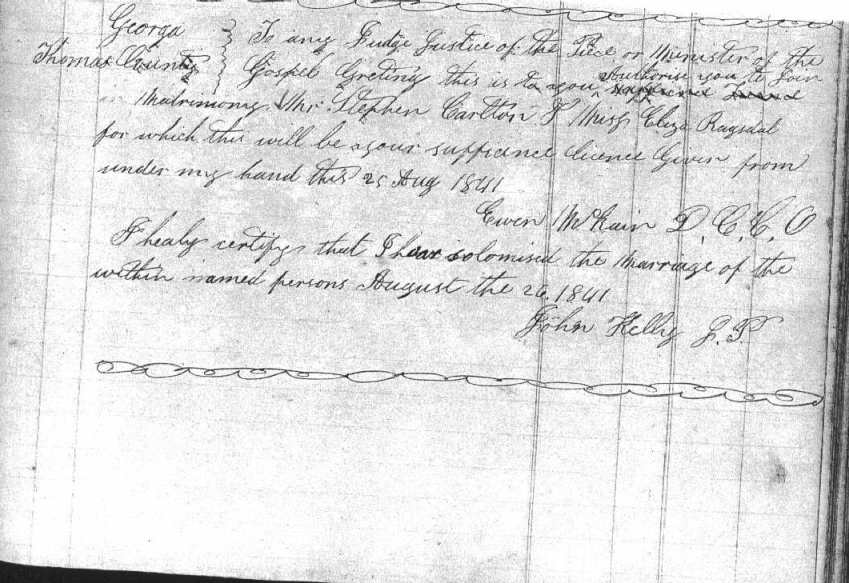 Georga
Thomas County
To any Judge Justice of the Pice or Minister of the
Gospel Greting this is to you Authorise you to Join
in Matrimony Mr. Stephen Carlton & Miss Eliza Ragsdal
for which this will be your sufficence licence Given from
under my hand this 25 Aug 1841
Ewen McKain D. C. C. O
I healy certify that I have solomised the Marriage of the
within named persons August the 26, 1841
John Kelly J. P.